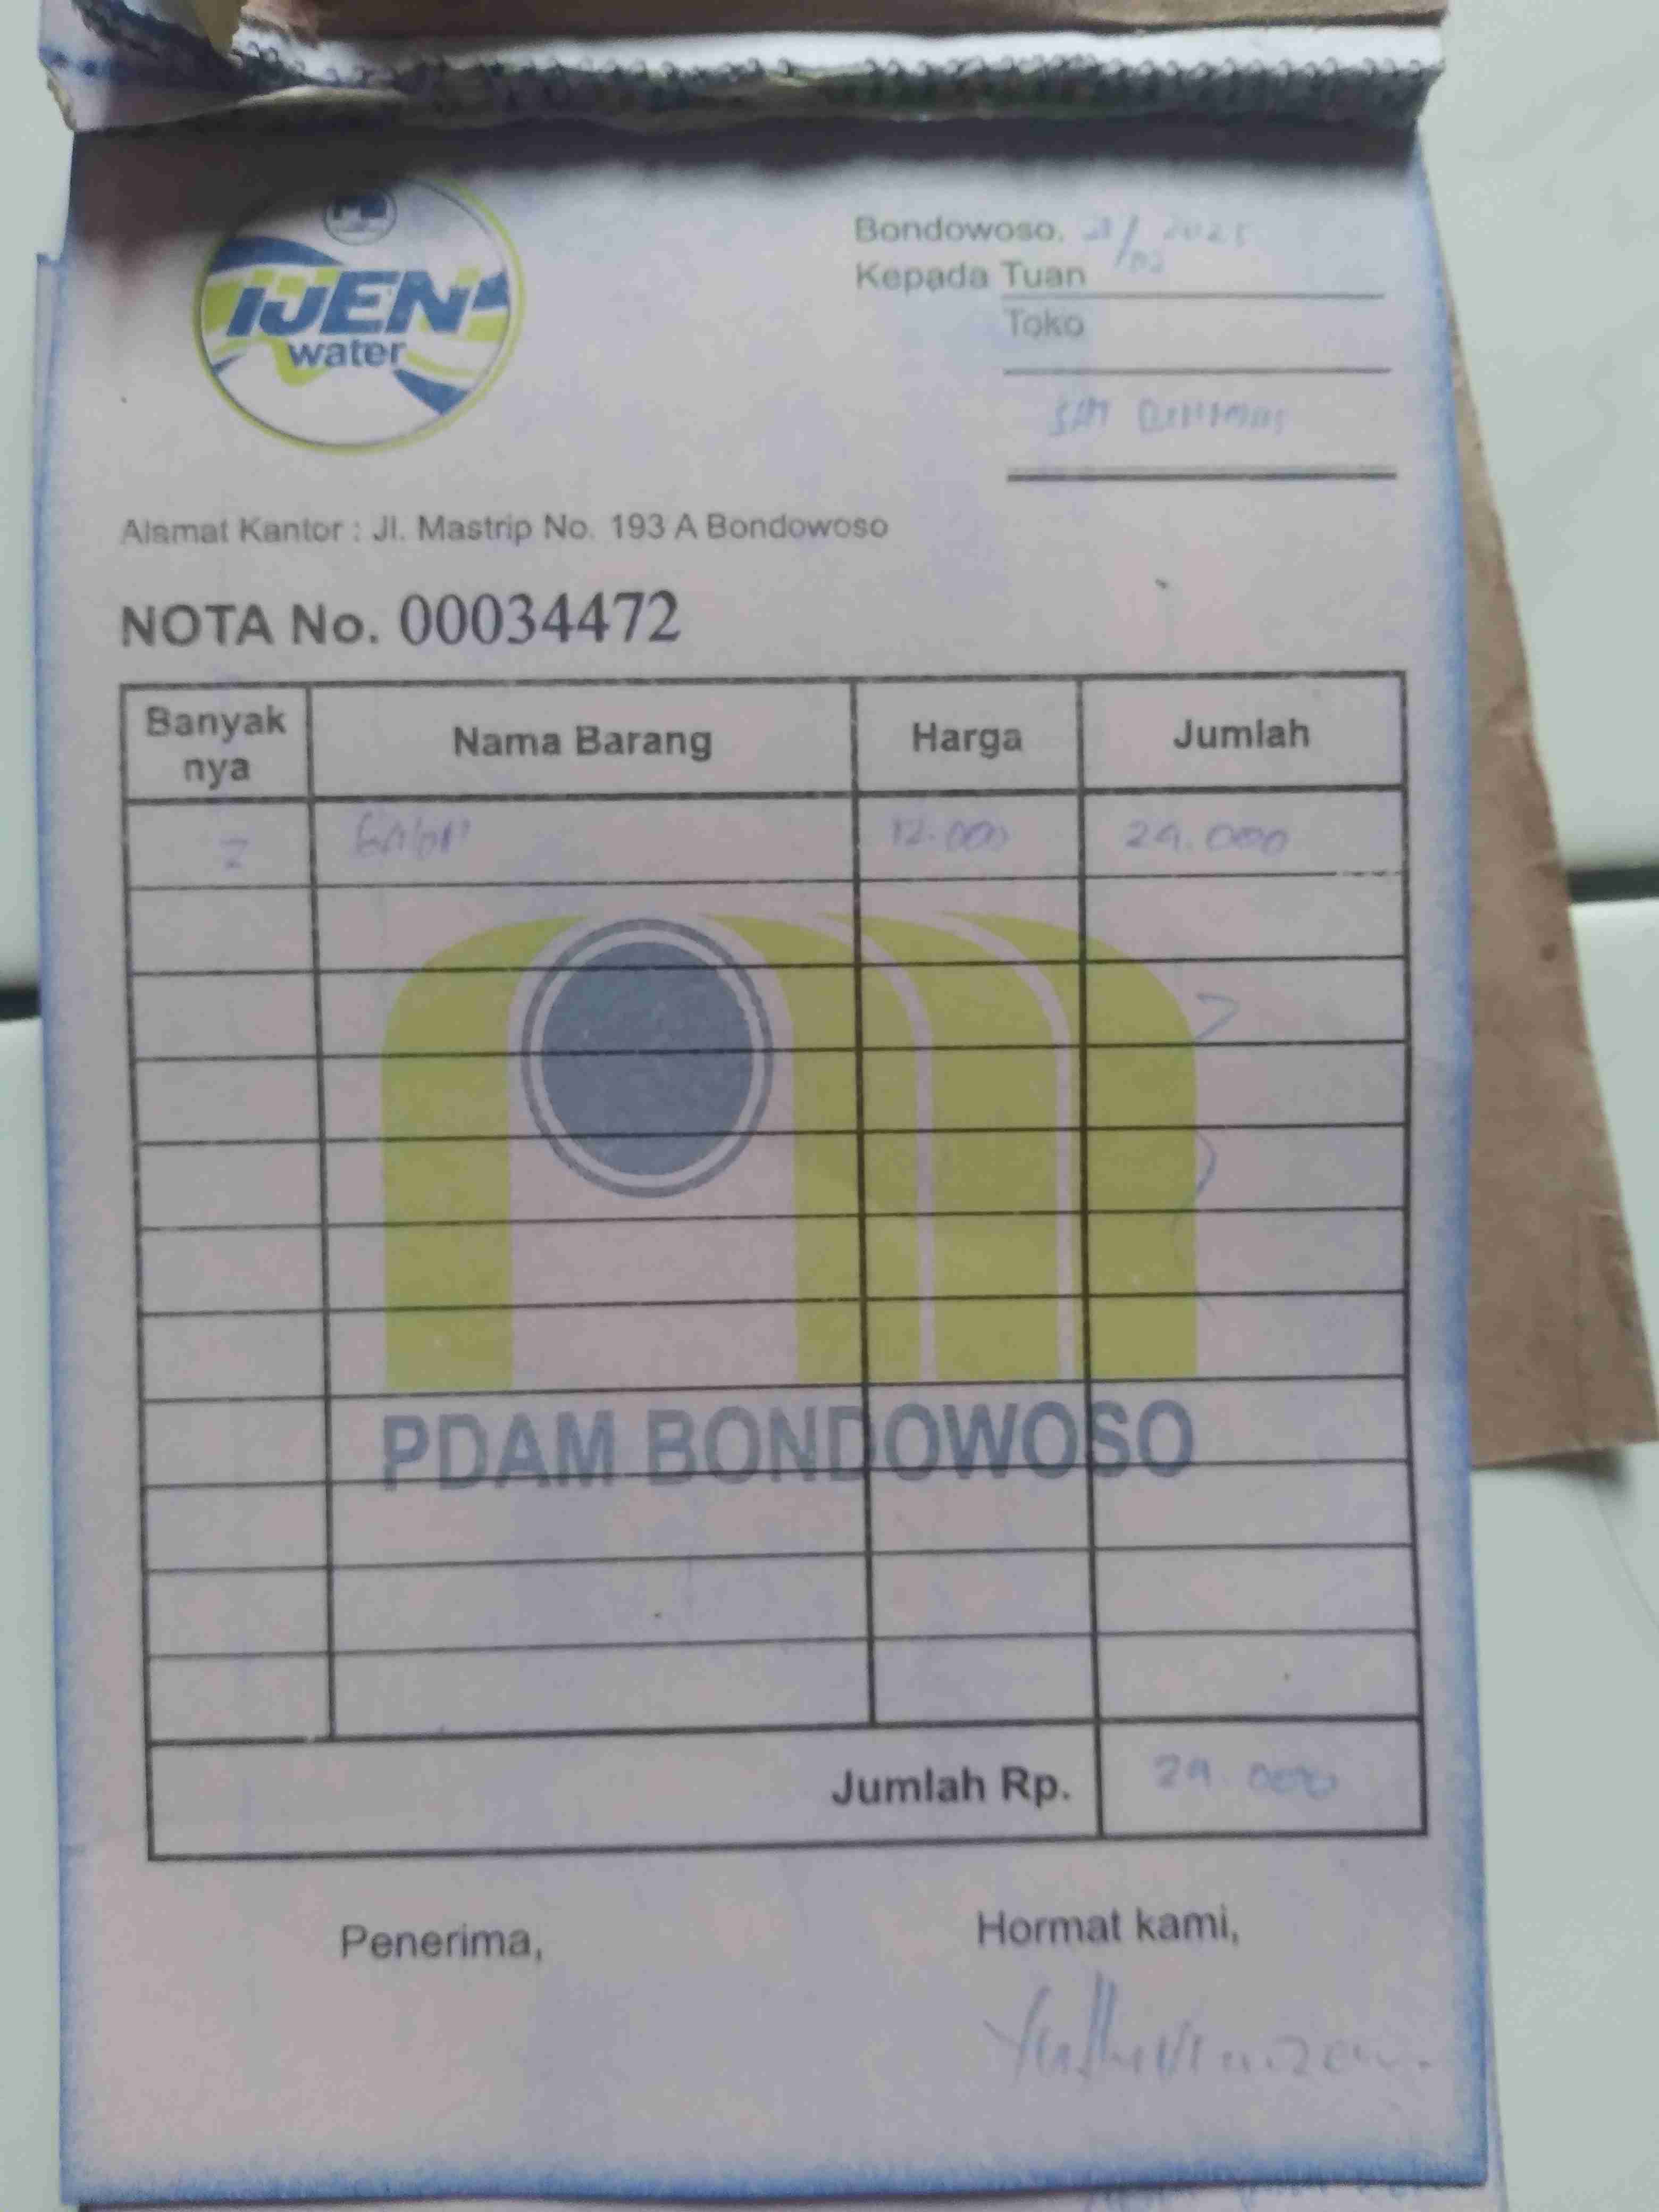 IJEN
water
Bondowoso, 21/02 2025
Kepada Tuan
Toko
Alamat Kantor : Jl. Mastrip No. 193 A Bondowoso
NOTA No. 00034472
Banyak nya Nama Barang Harga Jumlah
2 Galon 12.000 24.000
PDAM BONDOWOSO
Jumlah Rp. 24.000
Penerima,
Hormat kami,